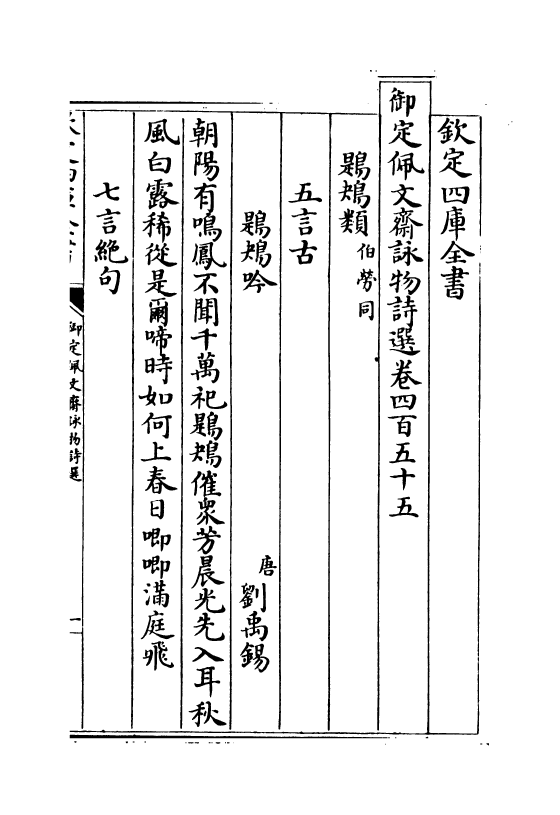 欽定四庫全書
御定佩文齋詠物詩選卷四百五十五
鶗鴂類伯勞同
五言古
鶗鴂吟 唐劉禹錫
朝陽有鳴鳳不聞千萬祀鶗鴂催衆芳晨光先入耳秋
風白露稀從是爾啼時如何上春日唧唧滿庭飛
七言絶句
御定佩文齋詠物詩選
一